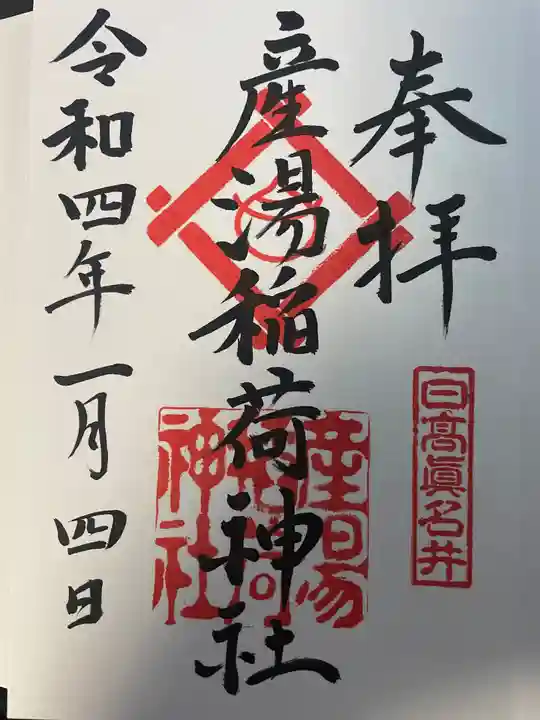 奉拝
日高眞名井
産湯稲荷神社
産湯
稲荷
神社
令和四年一月四日